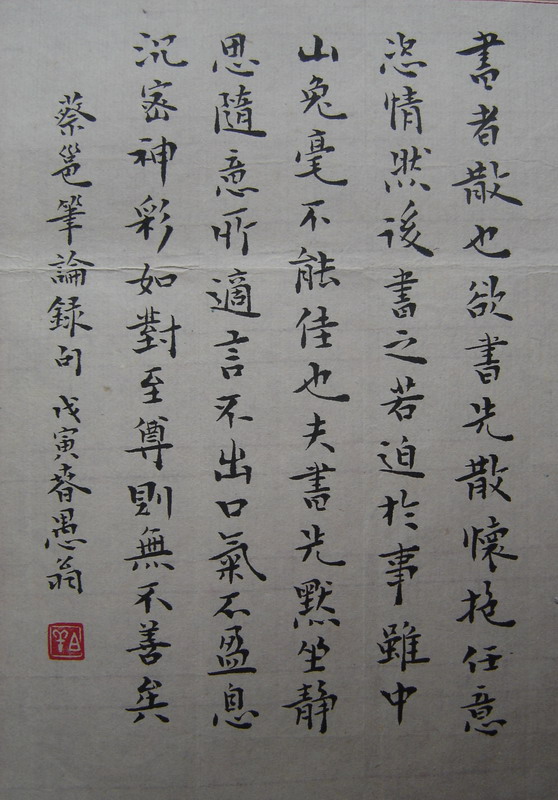 書者散也欲書先散懷抱任意
恣情然後書之若迫於事雖中
山兔毫不能佳也夫書先默坐静
思隨意所適言不出口氣不盈息
沉密神彩如對至尊則無不善矣
蔡邕筆論録句 戊寅春愚翁